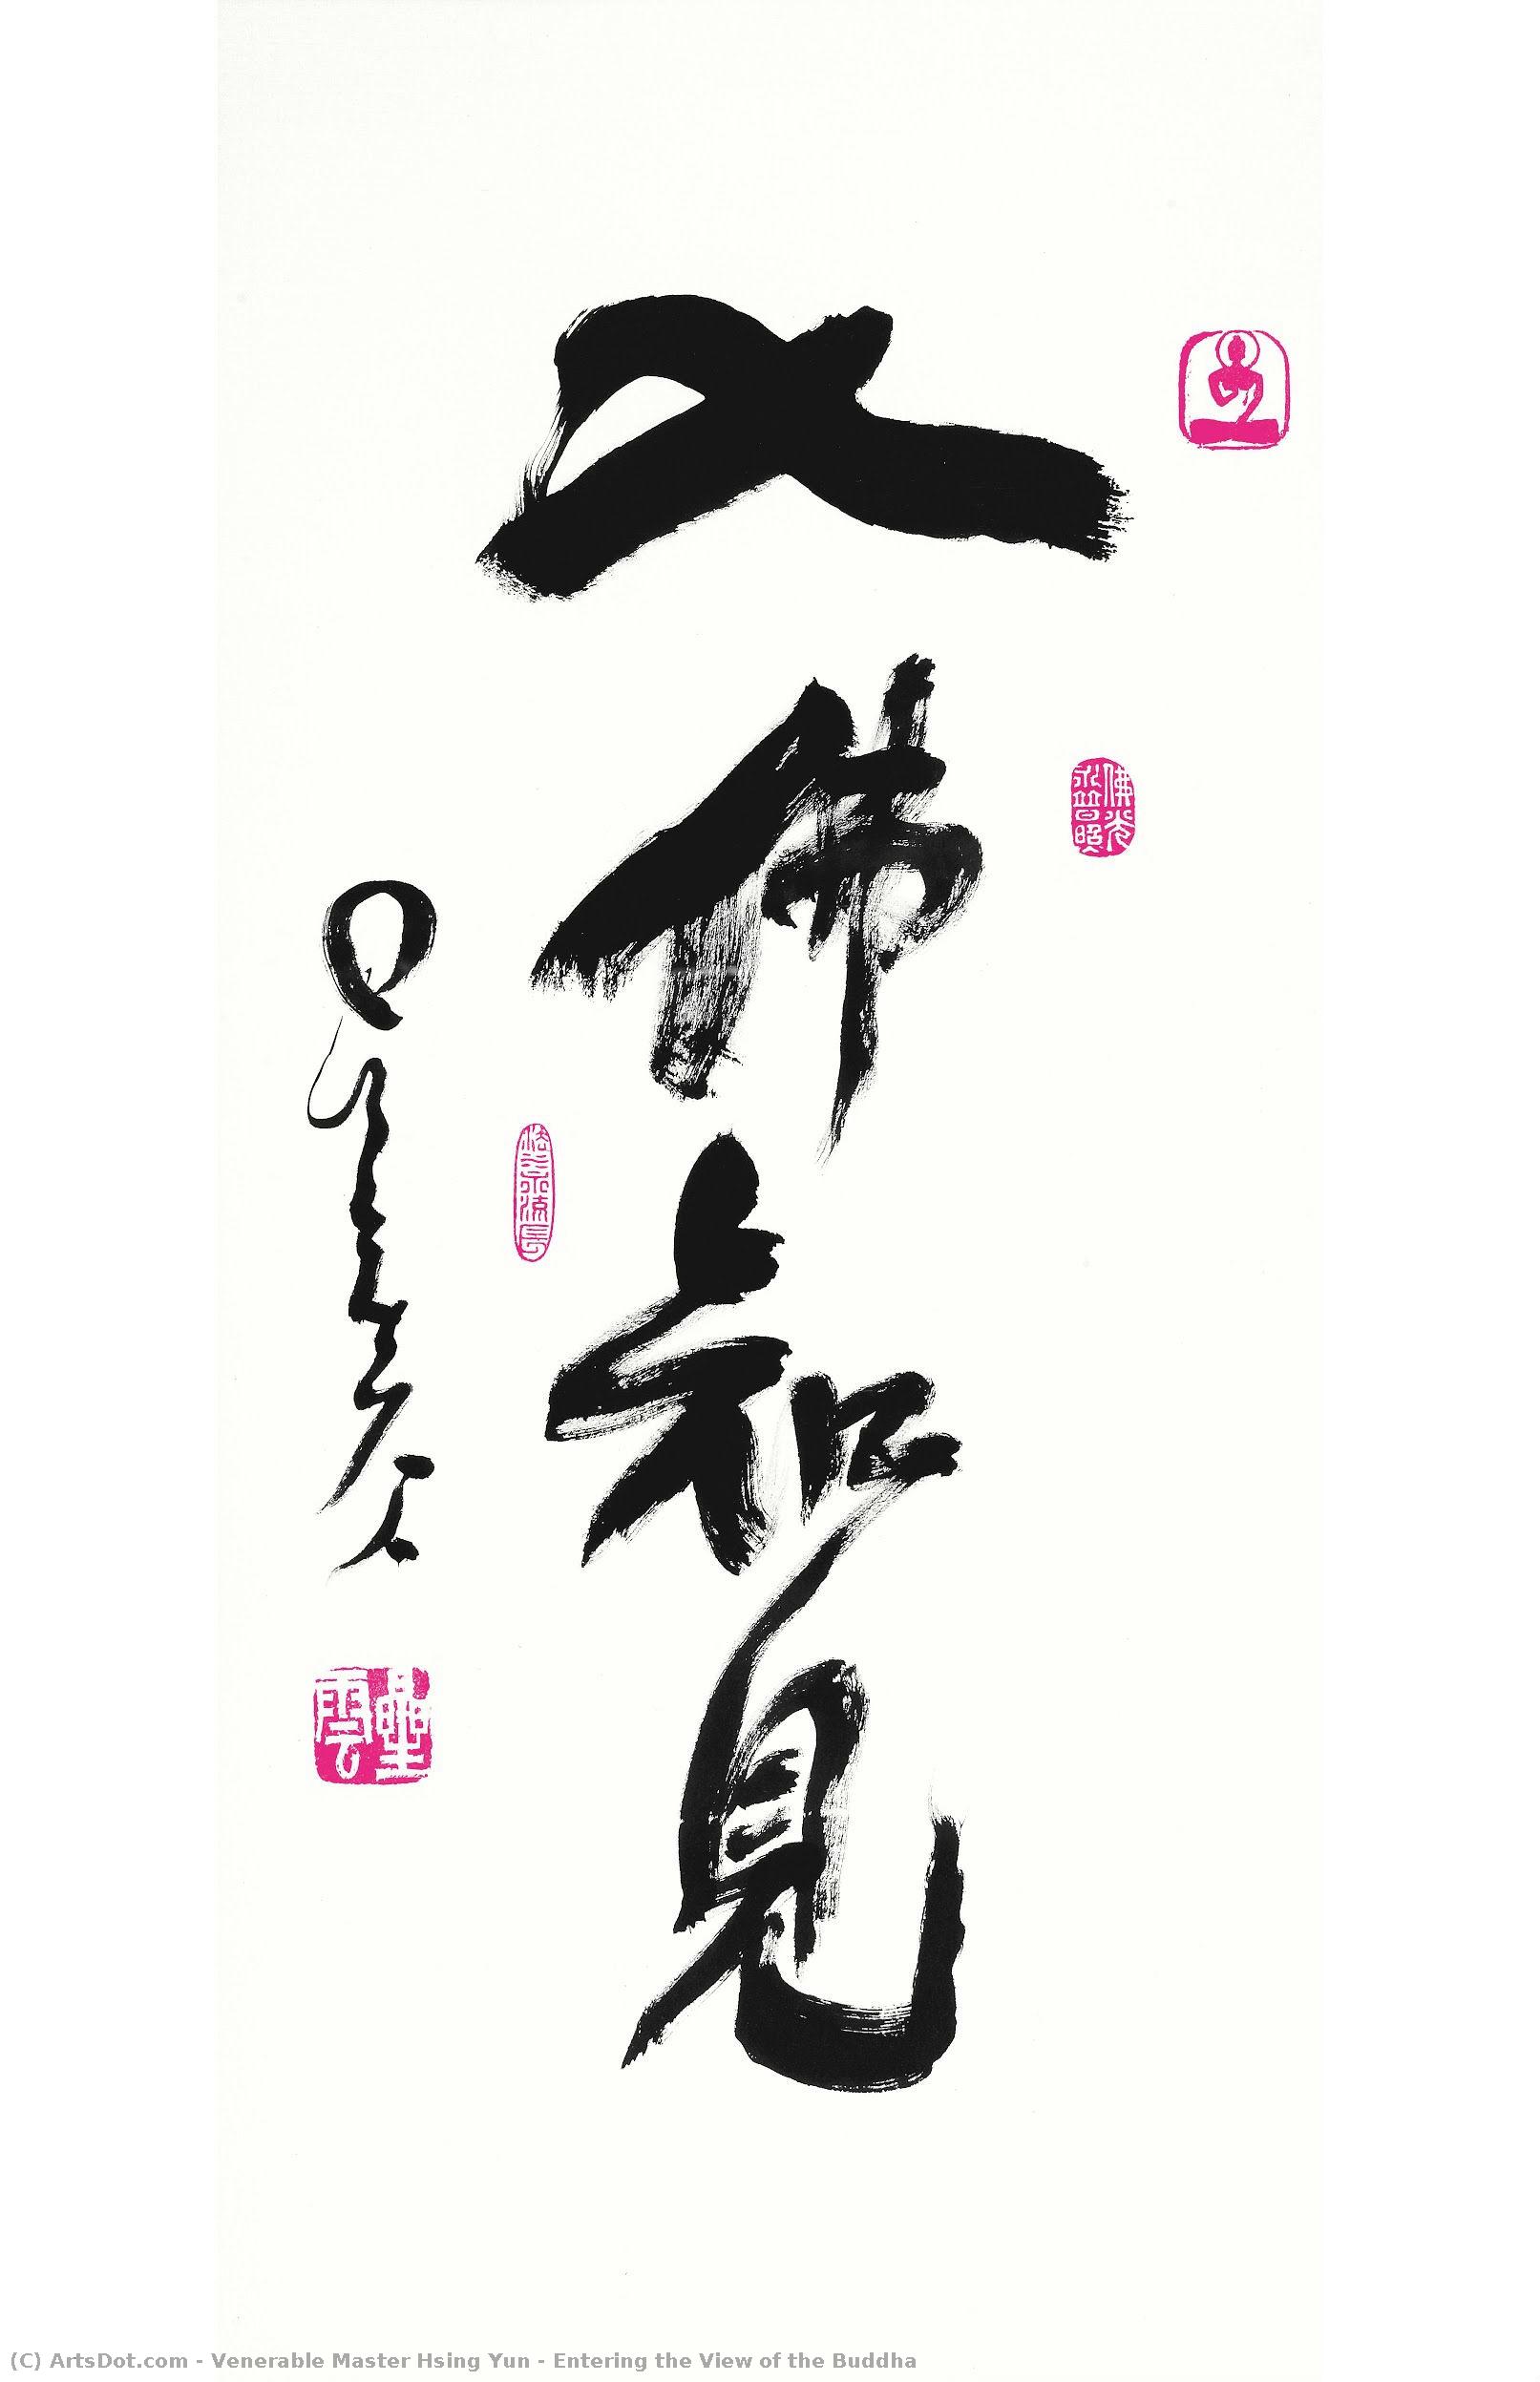 入佛知見
佛光
永普照
法水流長
星雲
(C) ArtsDot.com - Venerable Master Hsing Yun - Entering the View of the Buddha